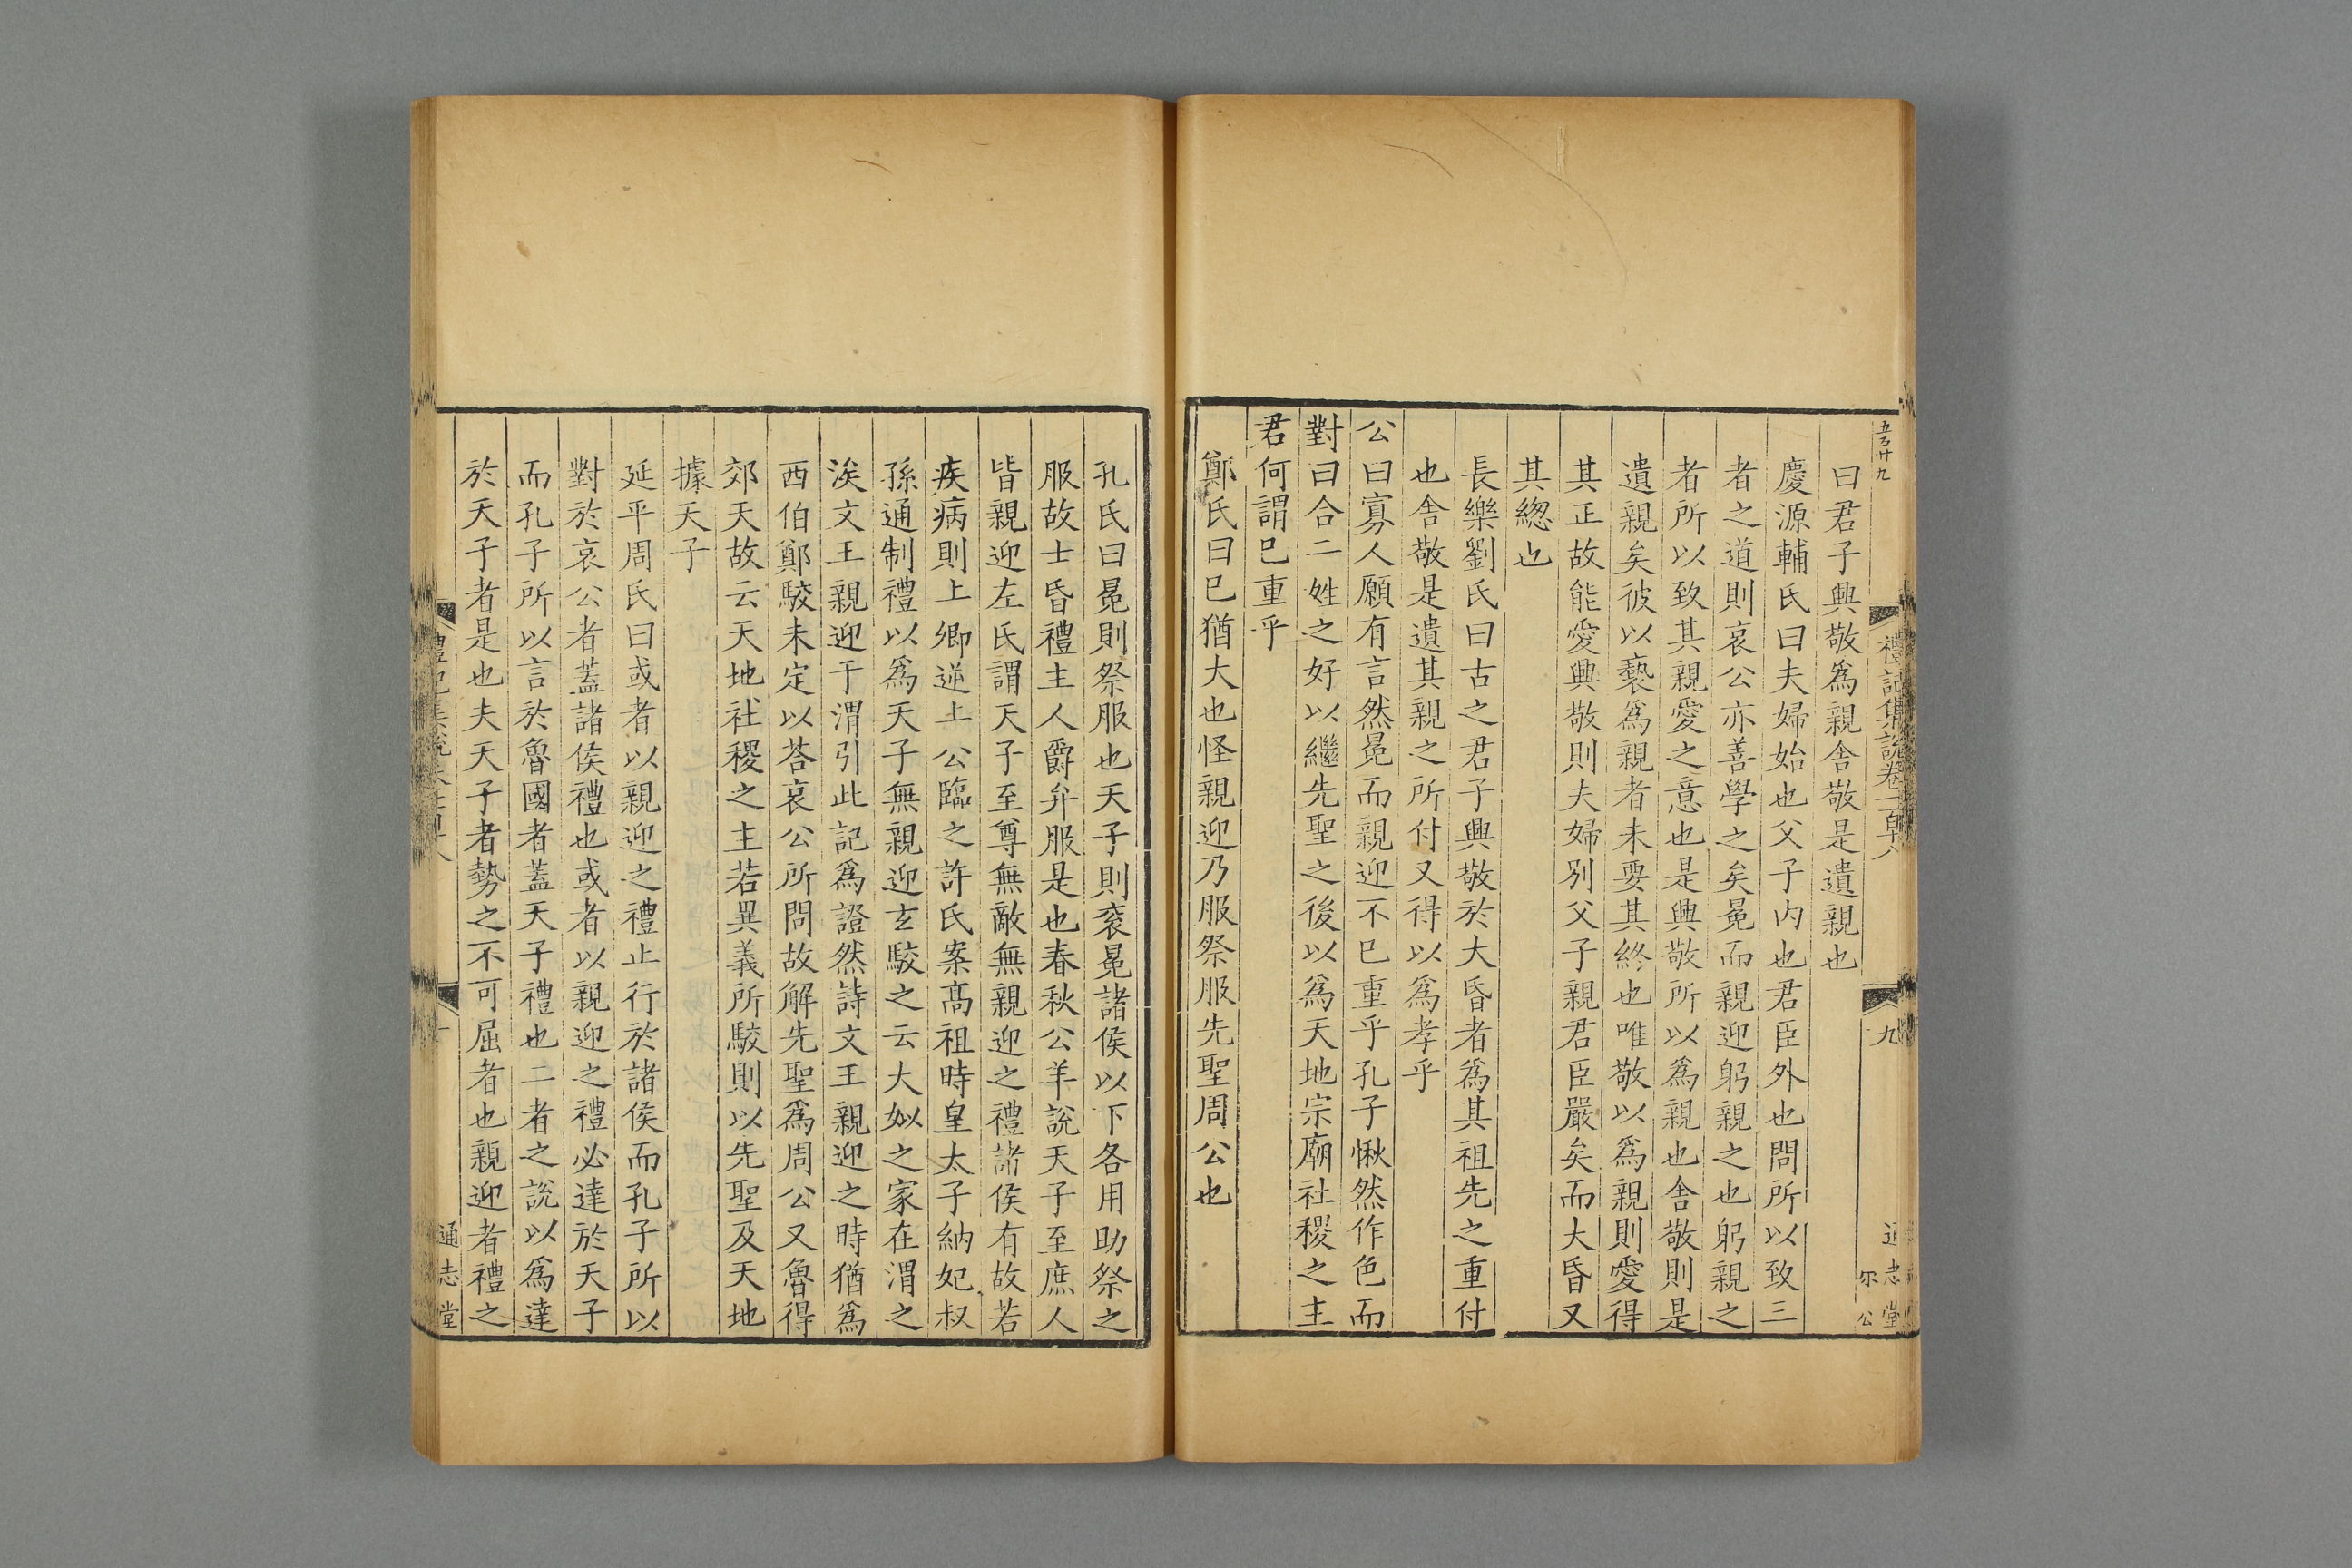 五百廿九
禮記集說卷一百十八
九
通志堂
尔公
曰君子興敬爲親舍敬是遺親也
慶源輔氏曰夫婦始也父子内也君臣外也問所以致三
者之道則哀公亦善學之矣冕而親迎躬親之也躬親之
者所以致其親愛之意也是興敬所以爲親也舍敬則是
遺親矣彼以褻爲親者未要其終也唯敬以爲親則愛得
其正故能愛興敬則夫婦別父子親君臣嚴矣而大昏又
其緫也
長樂劉氏曰古之君子興敬於大昏者爲其祖先之重付
也舍敬是遺其親之所付又得以爲孝乎
公曰寡人願有言然冕而親迎不已重乎孔子愀然作色而
對曰合二姓之好以繼先聖之後以爲天地宗廟社稷之主
君何謂已重乎
鄭氏曰已猶大也怪親迎乃服祭服先聖周公也
孔氏曰冕則祭服也天子則衮冕諸侯以下各用助祭之
服故士昏禮主人爵弁服是也春秋公羊説天子至庶人
皆親迎左氏謂天子至尊無敵無親迎之禮諸侯有故若
疾病則上卿逆上公臨之許氏案髙祖時皇太子納妃叔
孫通制禮以爲天子無親迎玄駮之云大姒之家在渭之
涘文王親迎于渭引此記爲證然詩文王親迎之時猶爲
西伯鄭駮未定以荅哀公所問故解先聖爲周公又魯得
郊天故云天地社稷之主若異義所駮則以先聖及天地
據天子
延平周氏曰或者以親迎之禮止行於諸侯而孔子所以
對於哀公者蓋諸侯禮也或者以親迎之禮必達於天子
而孔子所以言於魯國者蓋天子禮也二者之說以爲達
於天子者是也夫天子者勢之不可屈者也親迎者禮之
通志堂